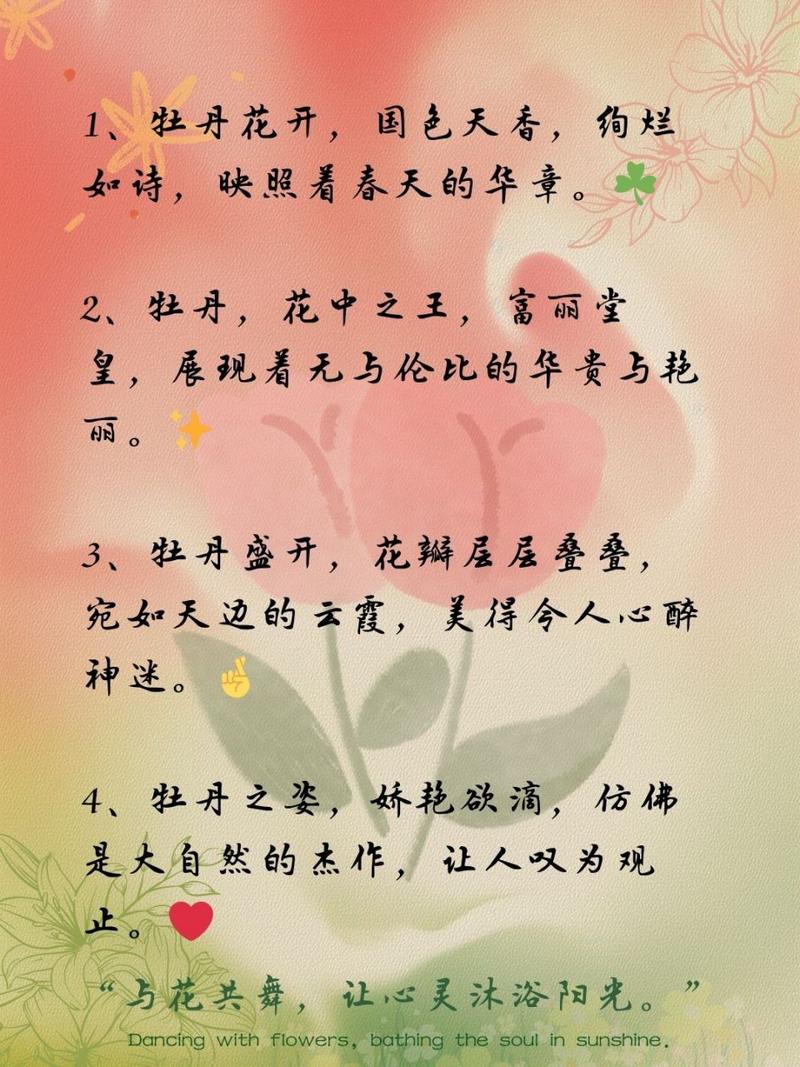 1、牡丹花开，国色天香，绚烂
如诗，映照着春天的华章。☘️
2、牡丹，花中之王，富丽堂
皇，展现着无与伦比的华贵与艳
丽。✨
3、牡丹盛开，花瓣层层叠叠，
宛如天边的云霞，美得令人心醉
神迷。🤞
4、牡丹之姿，娇艳欲滴，仿佛
是大自然的杰作，让人叹为观
止。❤️
“与花共舞，让心灵沐浴阳光。”
Dancing with flowers, bathing the soul in sunshine.